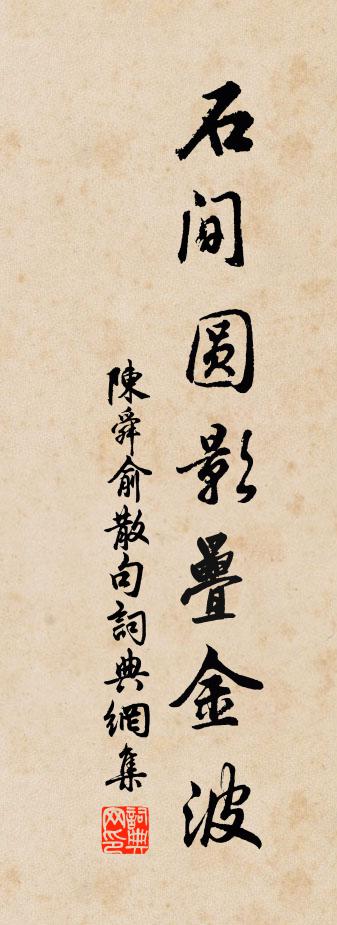 石间圆影疊金波
陳舜俞散句詞典網集
詞典网印